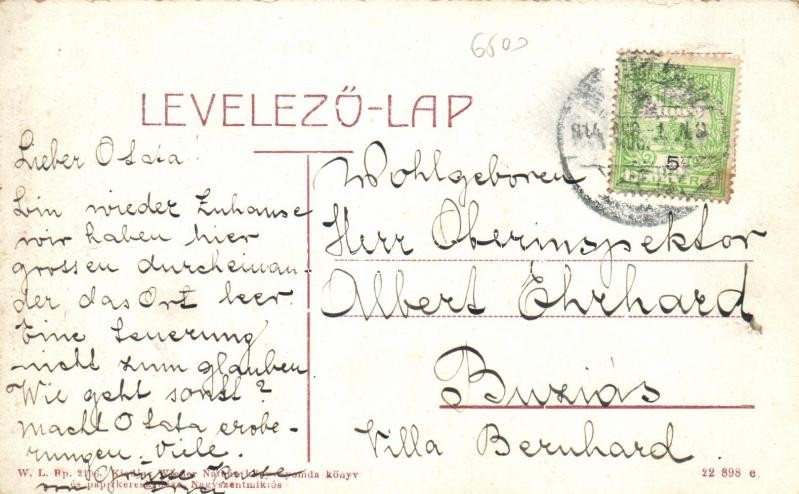 6500
LEVELEZŐ-LAP
Lieber Otata!
bin wieder Zuhause
wir haben hier
grossen durcheinan-
der, das Ort leer.
Eine Teuerung
nicht zum glauben
Wie geht sonst?
Macht Otata erobe-
rungen. Viele
Grüsse Küsse
von
Wohlgeboren
Herr Oberinspektor
Albert Ehrhard
Buziás
Villa Bernhard.
914 AUG.
5
W. L. Bp. Kiadja: Wiener Náthán könyvnyomda könyv
és papírkereskedése, Nagyszentmiklós
22 898 e.